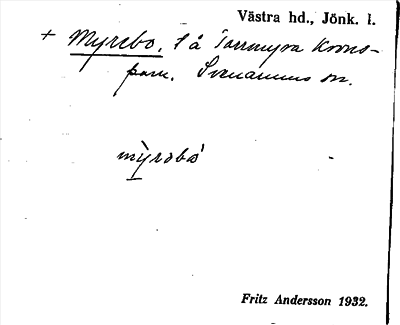 Västra hd., Jönk. l.
+ Myrebo, t å Torrmyra Krono-
park. Svenarums sn.
mỳrebó
Fritz Andersson 1932.